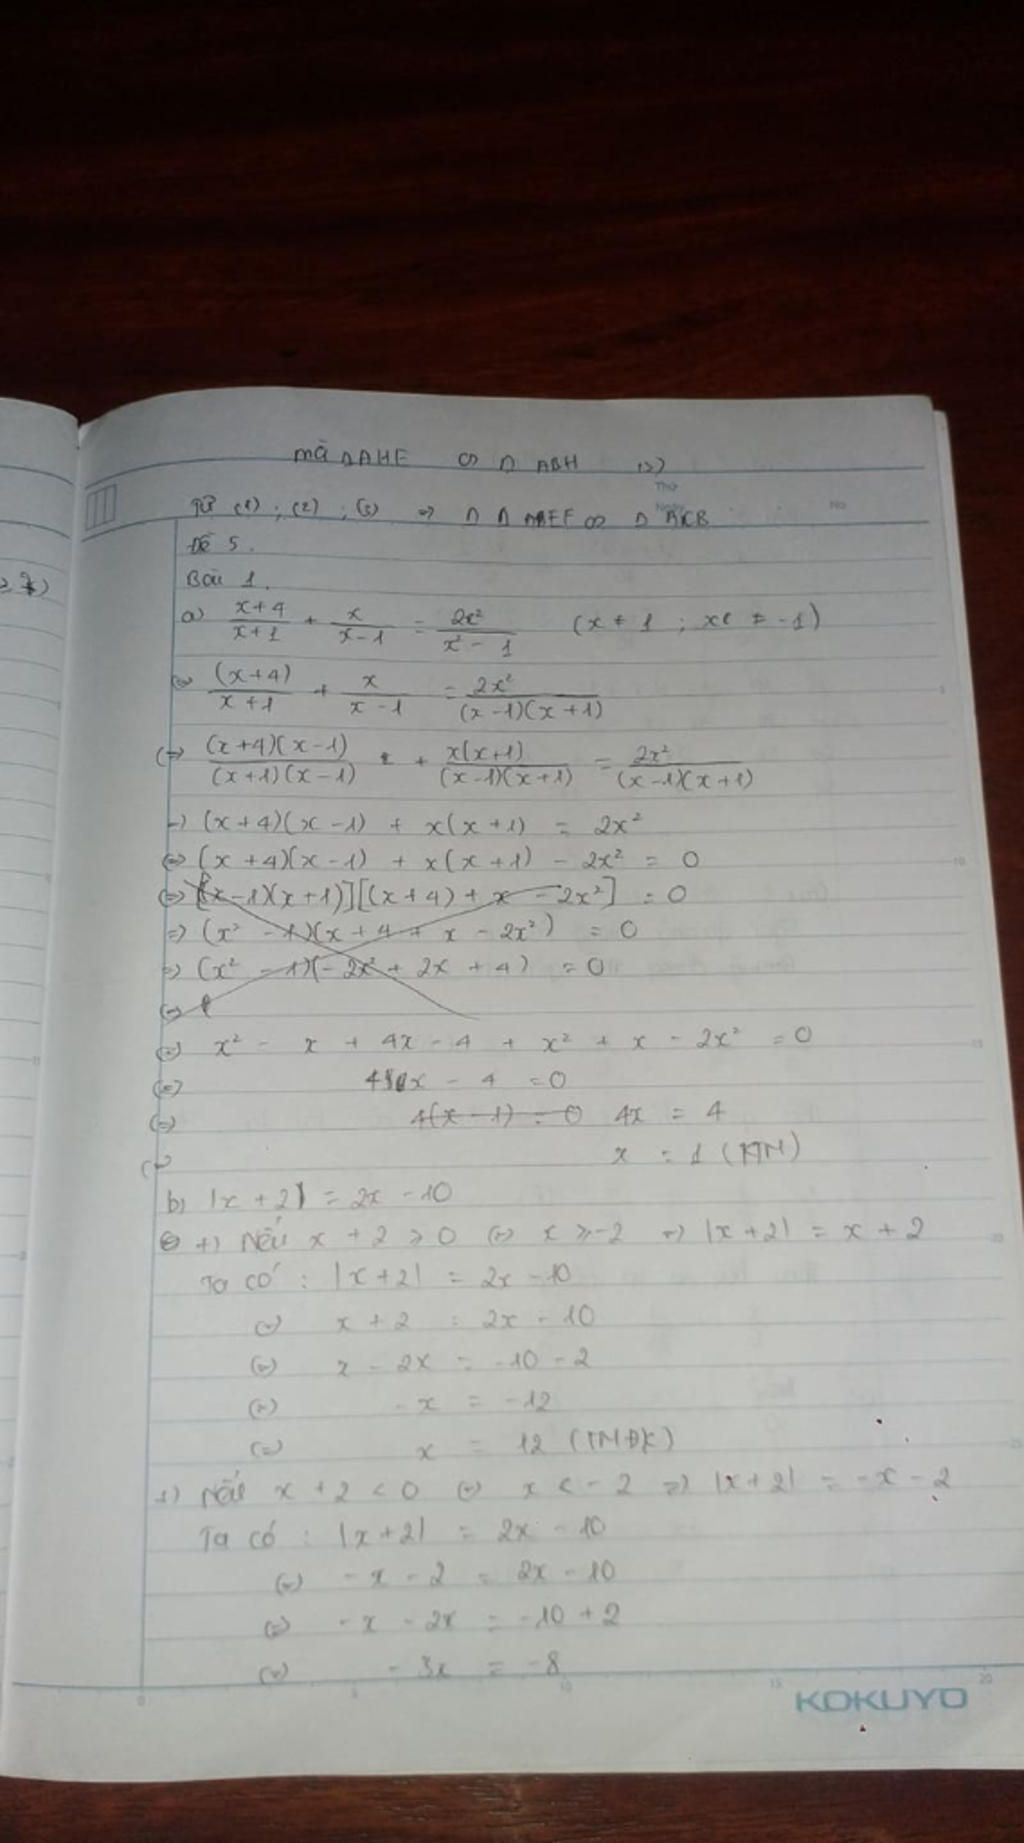 mà ΔAHE ∽ Δ ABH (3)
Thứ
Từ (1) ; (2) ; (3) => Δ AEF ∽ Δ ACB
No
Đề 5.
Bài 1.
a) (x+4)/(x+1) + x/(x-1) = 2x²/(x²-1) (x ≠ 1 ; x ≠ -1)
<=> (x+4)/(x+1) + x/(x-1) = 2x²/((x-1)(x+1))
<=> (x+4)(x-1)/((x+1)(x-1)) + x(x+1)/((x-1)(x+1)) = 2x²/((x-1)(x+1))
=> (x+4)(x-1) + x(x+1) = 2x²
<=> (x+4)(x-1) + x(x+1) - 2x² = 0
<=> [(x-1)(x+1)][(x+4) + x - 2x²] = 0
=> (x² - 1)(x + 4 + x - 2x²) = 0
=> (x² - 1)(-2x² + 2x + 4) = 0
<=>
<=> x² - x + 4x - 4 + x² + x - 2x² = 0
<=> 4x - 4 = 0
<=> 4(x - 1) = 0 4x = 4
x = 1 (KTM)
b) |x + 2| = 2x - 10
+) Nếu x + 2 ≥ 0 <=> x ≥ -2 => |x + 2| = x + 2
Ta có : |x + 2| = 2x - 10
<=> x + 2 = 2x - 10
<=> x - 2x = -10 - 2
<=> -x = -12
<=> x = 12 (TMĐK)
+) Nếu x + 2 < 0 <=> x < -2 => |x + 2| = -x - 2
Ta có : |x + 2| = 2x - 10
<=> -x - 2 = 2x - 10
<=> -x - 2x = -10 + 2
<=> -3x = -8
KOKUYO